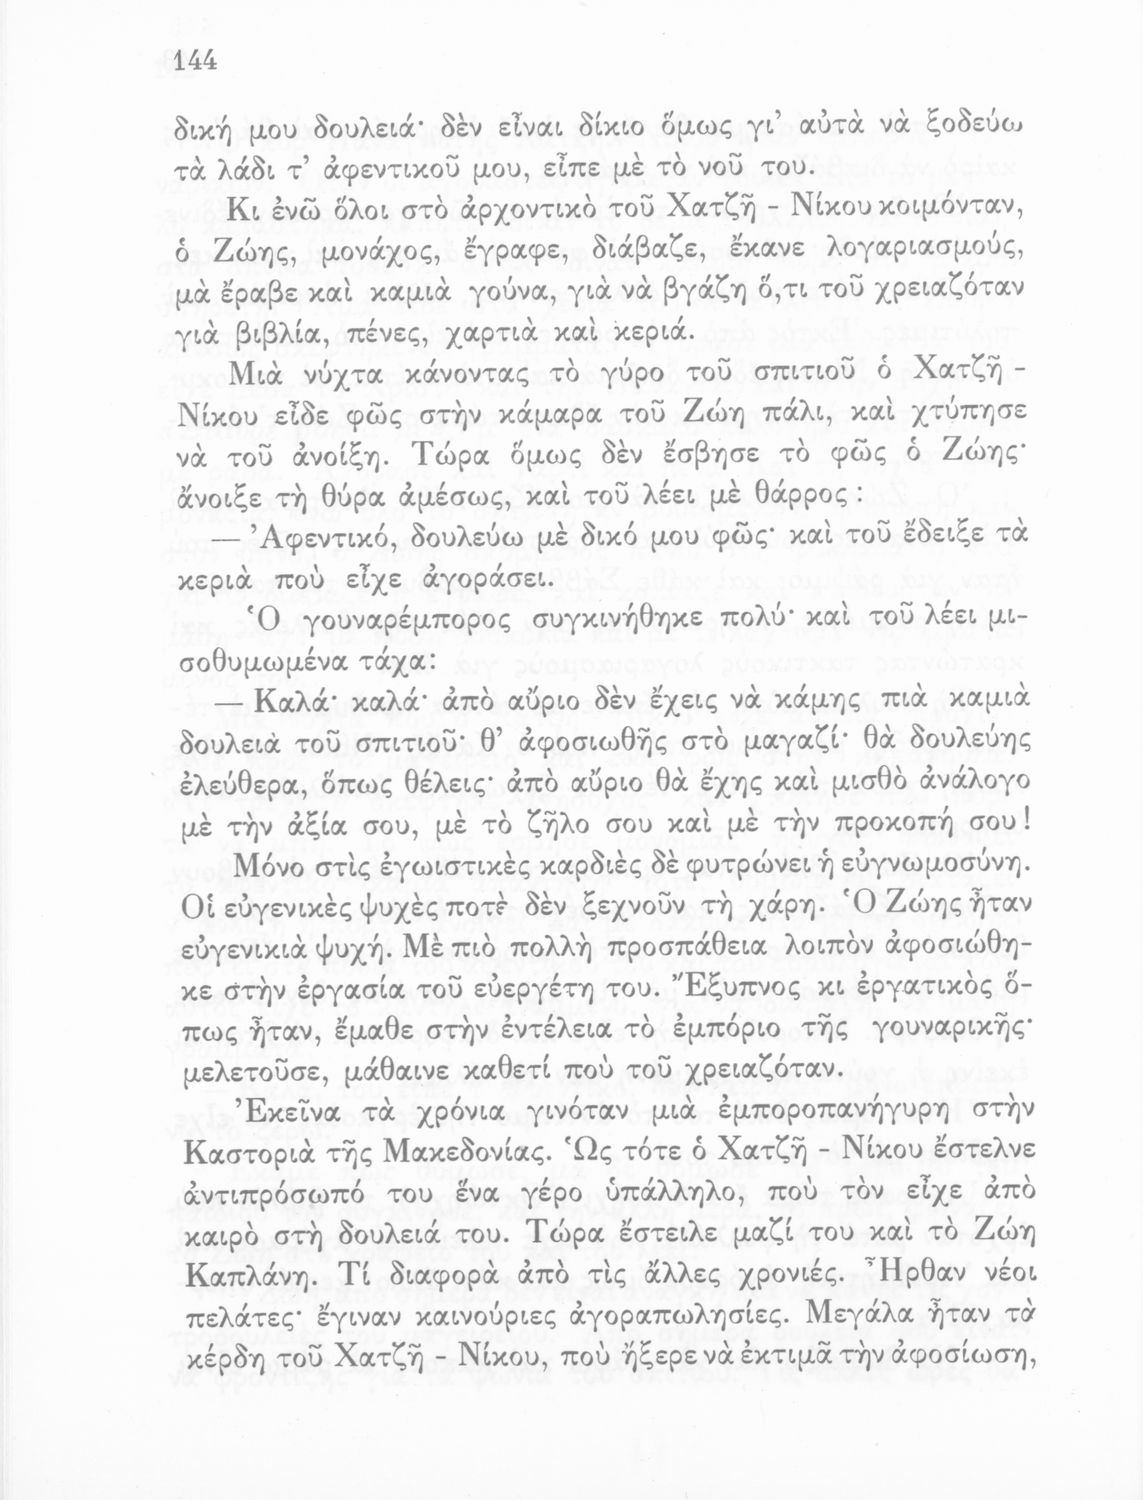 144
δική μου δουλειά· δὲν εἶναι δίκιο ὅμως γι’ αὐτὰ νὰ ξοδεύω
τὰ λάδι τ’ ἀφεντικοῦ μου, εἶπε μὲ τὸ νοῦ του.
Κι ἐνῶ ὅλοι στὸ ἀρχοντικὸ τοῦ Χατζῆ - Νίκου κοιμόνταν,
ὁ Ζώης, μονάχος, ἔγραφε, διάβαζε, ἔκανε λογαριασμούς,
μὰ ἔραβε καὶ καμιὰ γούνα, γιὰ νὰ βγάζη ὅ,τι τοῦ χρειαζόταν
γιὰ βιβλία, πένες, χαρτιὰ καὶ κεριά.
Μιὰ νύχτα κάνοντας τὸ γύρο τοῦ σπιτιοῦ ὁ Χατζῆ -
Νίκου εἶδε φῶς στὴν κάμαρα τοῦ Ζώη πάλι, καὶ χτύπησε
νὰ τοῦ ἀνοίξη. Τώρα ὅμως δὲν ἔσβησε τὸ φῶς ὁ Ζώης·
ἄνοιξε τὴ θύρα ἀμέσως, καὶ τοῦ λέει μὲ θάρρος :
— Ἀφεντικό, δουλεύω μὲ δικό μου φῶς· καὶ τοῦ ἔδειξε τὰ
κεριὰ ποὺ εἶχε ἀγοράσει.
Ὁ γουναρέμπορος συγκινήθηκε πολύ· καὶ τοῦ λέει μι-
σοθυμωμένα τάχα:
— Καλά· καλά· ἀπὸ αὔριο δὲν ἔχεις νὰ κάμης πιὰ καμιὰ
δουλειὰ τοῦ σπιτιοῦ· θ’ ἀφοσιωθῆς στὸ μαγαζί· θὰ δουλεύης
ἐλεύθερα, ὅπως θέλεις· ἀπὸ αὔριο θὰ ἔχης καὶ μισθὸ ἀνάλογο
μὲ τὴν ἀξία σου, μὲ τὸ ζῆλο σου καὶ μὲ τὴν προκοπή σου!
Μόνο στὶς ἐγωιστικὲς καρδιὲς δὲ φυτρώνει ἡ εὐγνωμοσύνη.
Οἱ εὐγενικὲς ψυχὲς ποτὲ δὲν ξεχνοῦν τὴ χάρη. Ὁ Ζώης ἦταν
εὐγενικιὰ ψυχή. Μὲ πιὸ πολλὴ προσπάθεια λοιπὸν ἀφοσιώθη-
κε στὴν ἐργασία τοῦ εὐεργέτη του. Ἔξυπνος κι ἐργατικὸς ὅ-
πως ἦταν, ἔμαθε στὴν ἐντέλεια τὸ ἐμπόριο τῆς γουναρικῆς·
μελετοῦσε, μάθαινε καθετί ποὺ τοῦ χρειαζόταν.
Ἐκεῖνα τὰ χρόνια γινόταν μιὰ ἐμποροπανήγυρη στὴν
Καστοριὰ τῆς Μακεδονίας. Ὡς τότε ὁ Χατζῆ - Νίκου ἔστελνε
ἀντιπρόσωπό του ἕνα γέρο ὑπάλληλο, ποὺ τὸν εἶχε ἀπὸ
καιρὸ στὴ δουλειά του. Τώρα ἔστειλε μαζί του καὶ τὸ Ζώη
Καπλάνη. Τί διαφορὰ ἀπὸ τὶς ἄλλες χρονιές. Ἦρθαν νέοι
πελάτες· ἔγιναν καινούριες ἀγοραπωλησίες. Μεγάλα ἦταν τὰ
κέρδη τοῦ Χατζῆ - Νίκου, ποὺ ἤξερε νὰ ἐκτιμᾶ τὴν ἀφοσίωση,